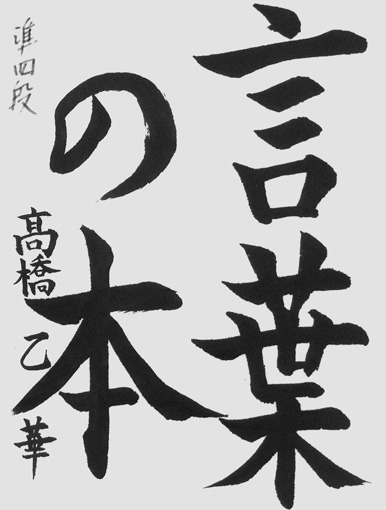 言葉
の本
準四段
髙橋乙華